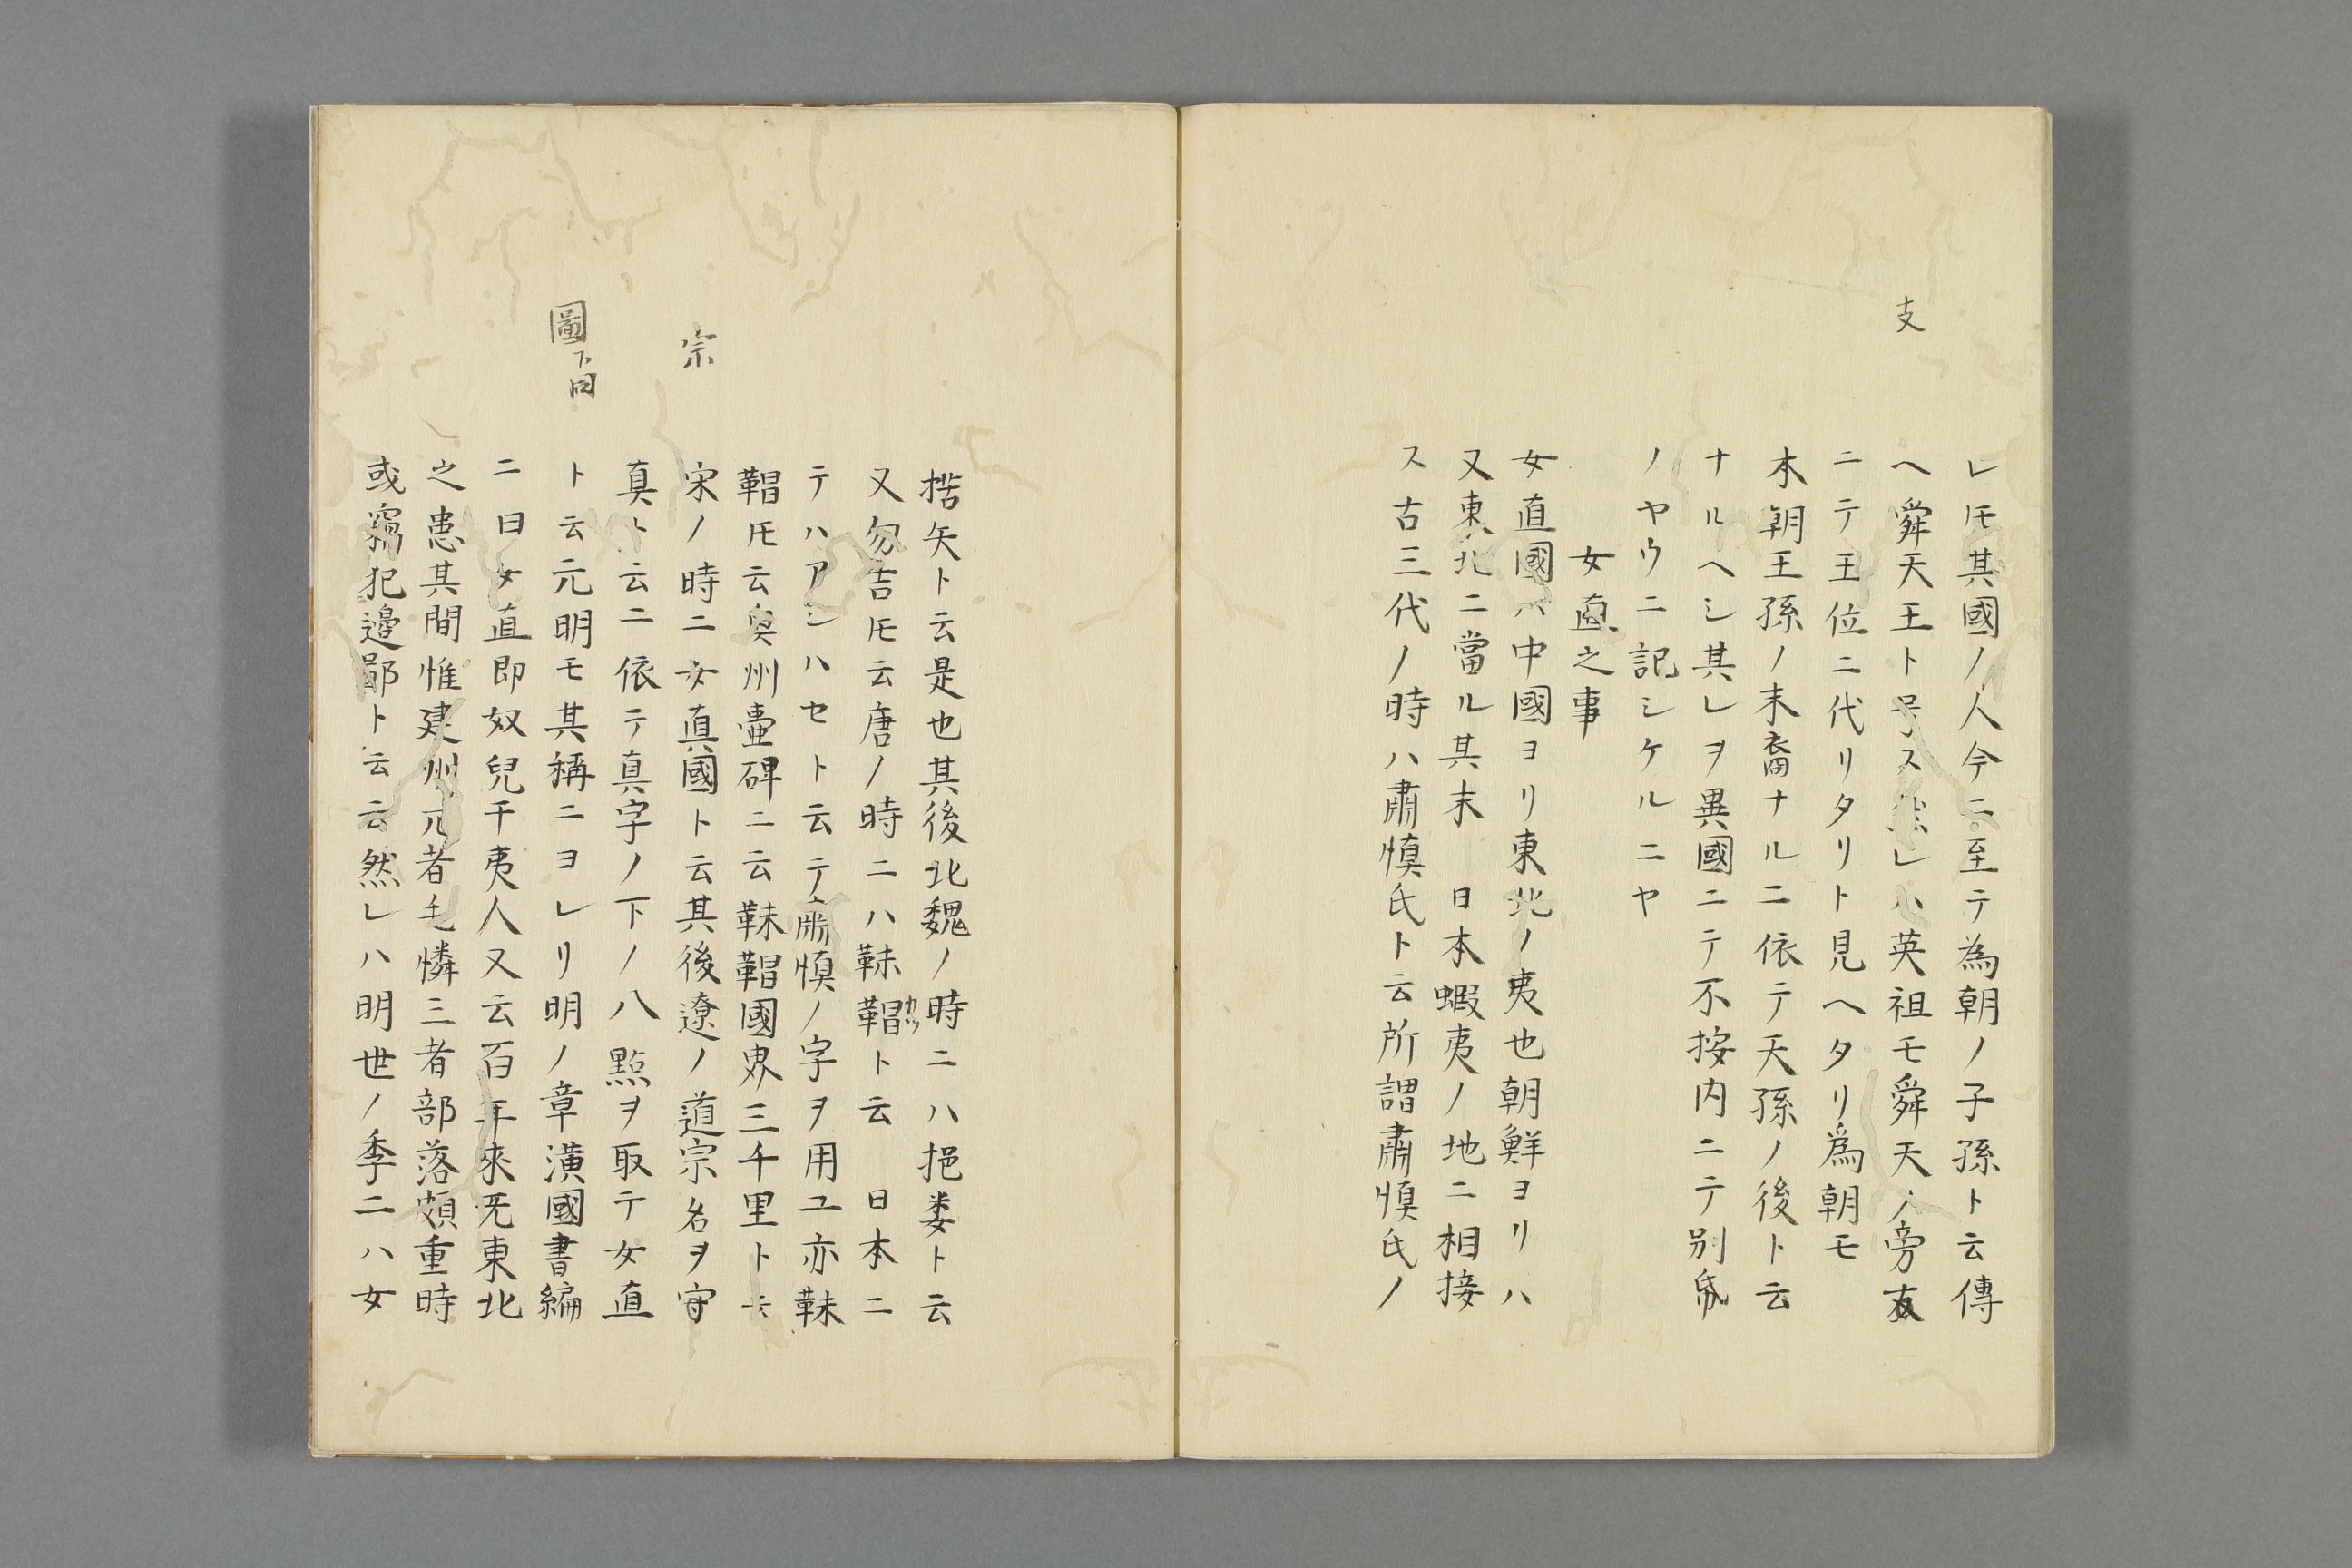 支
レ𪜈其國ノ人今ニ至テ為朝ノ子孫ト云傳
ヘ舜天王ト号ス然レハ英祖モ舜天ノ旁友
ニテ王位ニ代リタリト見ヘタリ爲朝モ
本朝王孫ノ末裔ナルニ依テ天孫ノ後ト云
ナルヘシ其レヲ異國ニテ不按内ニテ別帋
ノヤウニ記シケルニヤ
女直之事
女直國ハ中國ヨリ東北ノ夷也朝鮮ヨリハ
又東北ニ當ル其末 日本蝦夷ノ地ニ相接
ス古三代ノ時ハ肅慎氏ト云所謂肅慎氏ノ
楛矢ト云是也其後北魏ノ時ニハ挹娄ト云
又勿吉𪜈云唐ノ時ニハ靺鞨ト云 日本ニ
テハアシハセト云テ肅慎ノ字ヲ用ユ亦靺
鞨𪜈云奥州壷碑ニ云靺鞨國界三千里ト云
宗
宋ノ時ニ女真國ト云其後遼ノ道宗名ヲ守
真ト云ニ依テ真字ノ下ノ八點ヲ取テ女直
圖下同
ト云元明モ其稱ニヨレリ明ノ章潢國書編
ニ曰女直即奴兒干夷人又云百年來旡東北
之患其間惟建州兀者毛憐三者部落頗重時
或竊犯邊鄙ト云云然レハ明世ノ季ニハ女